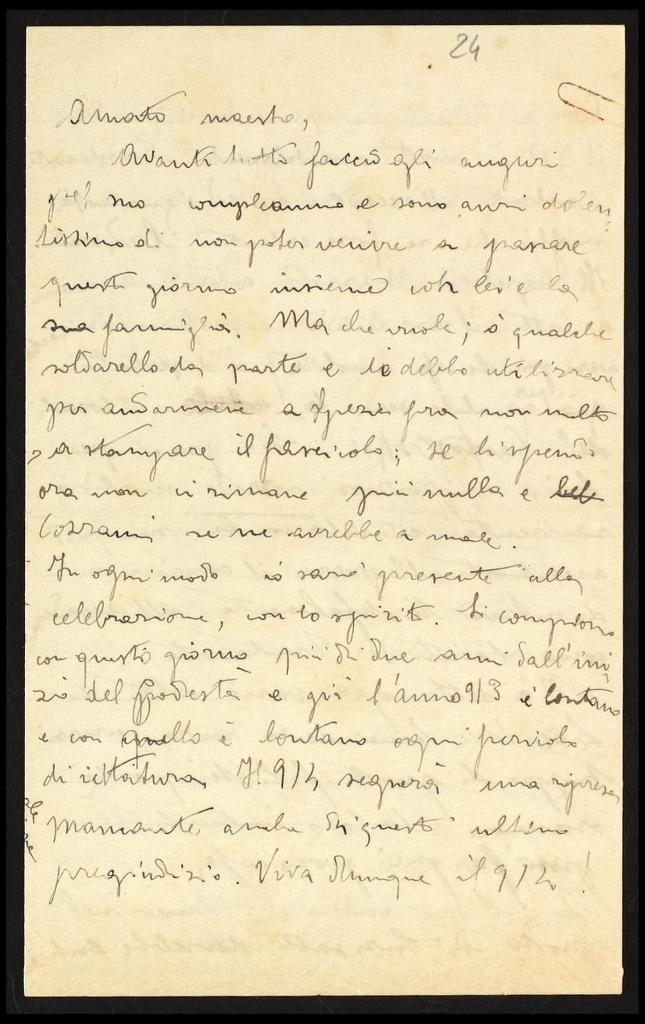 24
Amato maestro,
Avanti tutto faccio gli auguri
pel suo compleanno e sono anzi dolen-
tissimo di non poter venire a passare
questo giorno insieme con lei e la
sua famiglia. Ma che vuole; ò qualche
soldarello da parte e lo debbo utilizzare
per andarmene a Spezia fra non molto
a stampare il fascicolo; se li spendo
ora non ci rimane più nulla e
Cozzani se ne avrebbe a male.
In ogni modo io sarò presente alla
celebrazione, con lo spirito. Si compiono
con questo giorno più di due anni dall'ini-
zio del e già l'anno 913 è lontano
e con quello è lontano ogni pericolo
di iettatura. Il 914 segnerà una ripresa
anche di quest'ultimo
pregiudizio. Viva dunque il 914!